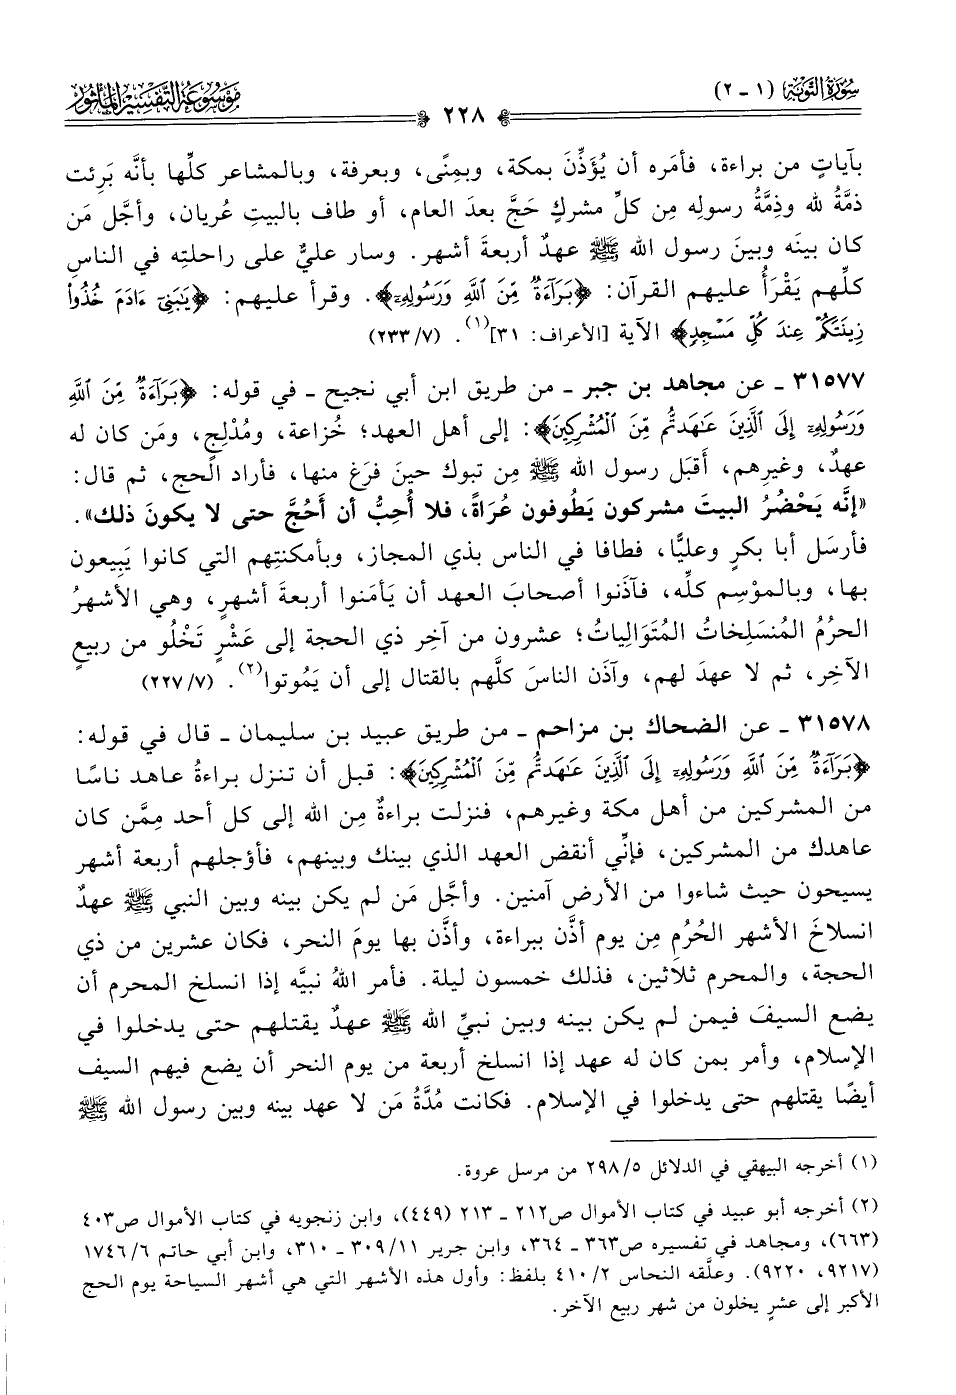 سُورَةُ التَّوْبَةِ (١ - ٢)
٢٢٨
مَوْسُوعَةُ التَّفْسِيرِ المَأْثُور
بآياتٍ من براءة، فأمَره أن يُؤَذِّنَ بمكة، وبمِنًى، وبعرفة، وبالمشاعر كلِّها بأنَّه بَرِئت
ذمَّةُ لله وذِمَّةُ رسولِه مِن كلِّ مشركٍ حَجَّ بعدَ العام، أو طاف بالبيتِ عُريان، وأجَّل مَن
كان بينَه وبينَ رسول الله ﷺ عهدٌ أربعةَ أشهر. وسار عليٌّ على راحلتِه في الناسِ
كلِّهم يَقْرَأُ عليهم القرآن: ﴿بَرَآءَةٌ مِّنَ ٱللَّهِ وَرَسُولِهِۦٓ﴾. وقرأ عليهم: ﴿يَٰبَنِىٓ ءَادَمَ خُذُوا۟
زِينَتَكُمْ عِندَ كُلِّ مَسْجِدٍ﴾ الآية [الأعراف: ٣١](١). (٢٣٣/٧)
٣١٥٧٧ - عن مجاهد بن جبر - من طريق ابن أبي نجيح - في قوله: ﴿بَرَآءَةٌ مِّنَ ٱللَّهِ
وَرَسُولِهِۦٓ إِلَى ٱلَّذِينَ عَٰهَدتُّم مِّنَ ٱلْمُشْرِكِينَ﴾: إلى أهل العهد؛ خُزاعة، ومُدْلِجٍ، ومَن كان له
عهدٌ، وغيرِهم، أَقبَل رسول الله ﷺ مِن تبوك حينَ فرَغ منها، فأراد الحج، ثم قال:
«إنَّه يَحْضُرُ البيتَ مشركون يَطُوفون عُرَاةً، فلا أُحِبُّ أن أَحُجَّ حتى لا يكونَ ذلك».
فأرسَل أبا بكرٍ وعليًّا، فطافا في الناس بذي المجاز، وبأمكنتِهم التي كانوا يَبِيعون
بها، وبالموْسِم كلِّه، فآذَنوا أصحابَ العهد أن يَأمَنوا أربعةَ أشهرٍ، وهي الأشهرُ
الحرُمُ المُنسَلِخاتُ المُتَوَالِياتُ؛ عشرون من آخِر ذي الحجة إلى عَشْرٍ تَخْلُو من ربيعٍ
الآخِر، ثم لا عهدَ لهم، وآذَن الناسَ كلَّهم بالقتال إلى أن يَمُوتوا(٢). (٢٢٧/٧)
٣١٥٧٨ - عن الضحاك بن مزاحم - من طريق عبيد بن سليمان - قال في قوله:
﴿بَرَآءَةٌ مِّنَ ٱللَّهِ وَرَسُولِهِۦٓ إِلَى ٱلَّذِينَ عَٰهَدتُّم مِّنَ ٱلْمُشْرِكِينَ﴾: قبل أن تنزل براءةُ عاهد ناسًا
من المشركين من أهل مكة وغيرهم، فنزلت براءةٌ مِن الله إلى كل أحد مِمَّن كان
عاهدك من المشركين، فإنِّي أنقض العهد الذي بينك وبينهم، فأؤجلهم أربعة أشهر
يسيحون حيث شاءوا من الأرض آمنين. وأجَّل مَن لم يكن بينه وبين النبي ﷺ عهدٌ
انسلاخَ الأشهر الحُرُمِ مِن يوم أذَّن ببراءة، وأذَّن بها يومَ النحر، فكان عشرين من ذي
الحجة، والمحرم ثلاثين، فذلك خمسون ليلة. فأمر اللهُ نبيَّه إذا انسلخ المحرم أن
يضع السيفَ فيمن لم يكن بينه وبين نبيِّ الله ﷺ عهدٌ يقتلهم حتى يدخلوا في
الإسلام، وأمر بمن كان له عهد إذا انسلخ أربعة من يوم النحر أن يضع فيهم السيف
أيضًا يقتلهم حتى يدخلوا في الإسلام. فكانت مُدَّةُ مَن لا عهد بينه وبين رسول الله ﷺ
(١) أخرجه البيهقي في الدلائل ٢٩٨/٥ من مرسل عروة.
(٢) أخرجه أبو عبيد في كتاب الأموال ص٢١٢ - ٢١٣ (٤٤٩)، وابن زنجويه في كتاب الأموال ص٤٠٣
(٦٦٣)، ومجاهد في تفسيره ص٣٦٣ - ٣٦٤، وابن جرير ٣٠٩/١١ - ٣١٠، وابن أبي حاتم ١٧٤٦/٦
(٩٢١٧، ٩٢٢٠). وعلَّقه النحاس ٤١٠/٢ بلفظ: وأول هذه الأشهر التي هي أشهر السياحة يوم الحج
الأكبر إلى عشرٍ يخلون من شهر ربيع الآخر.